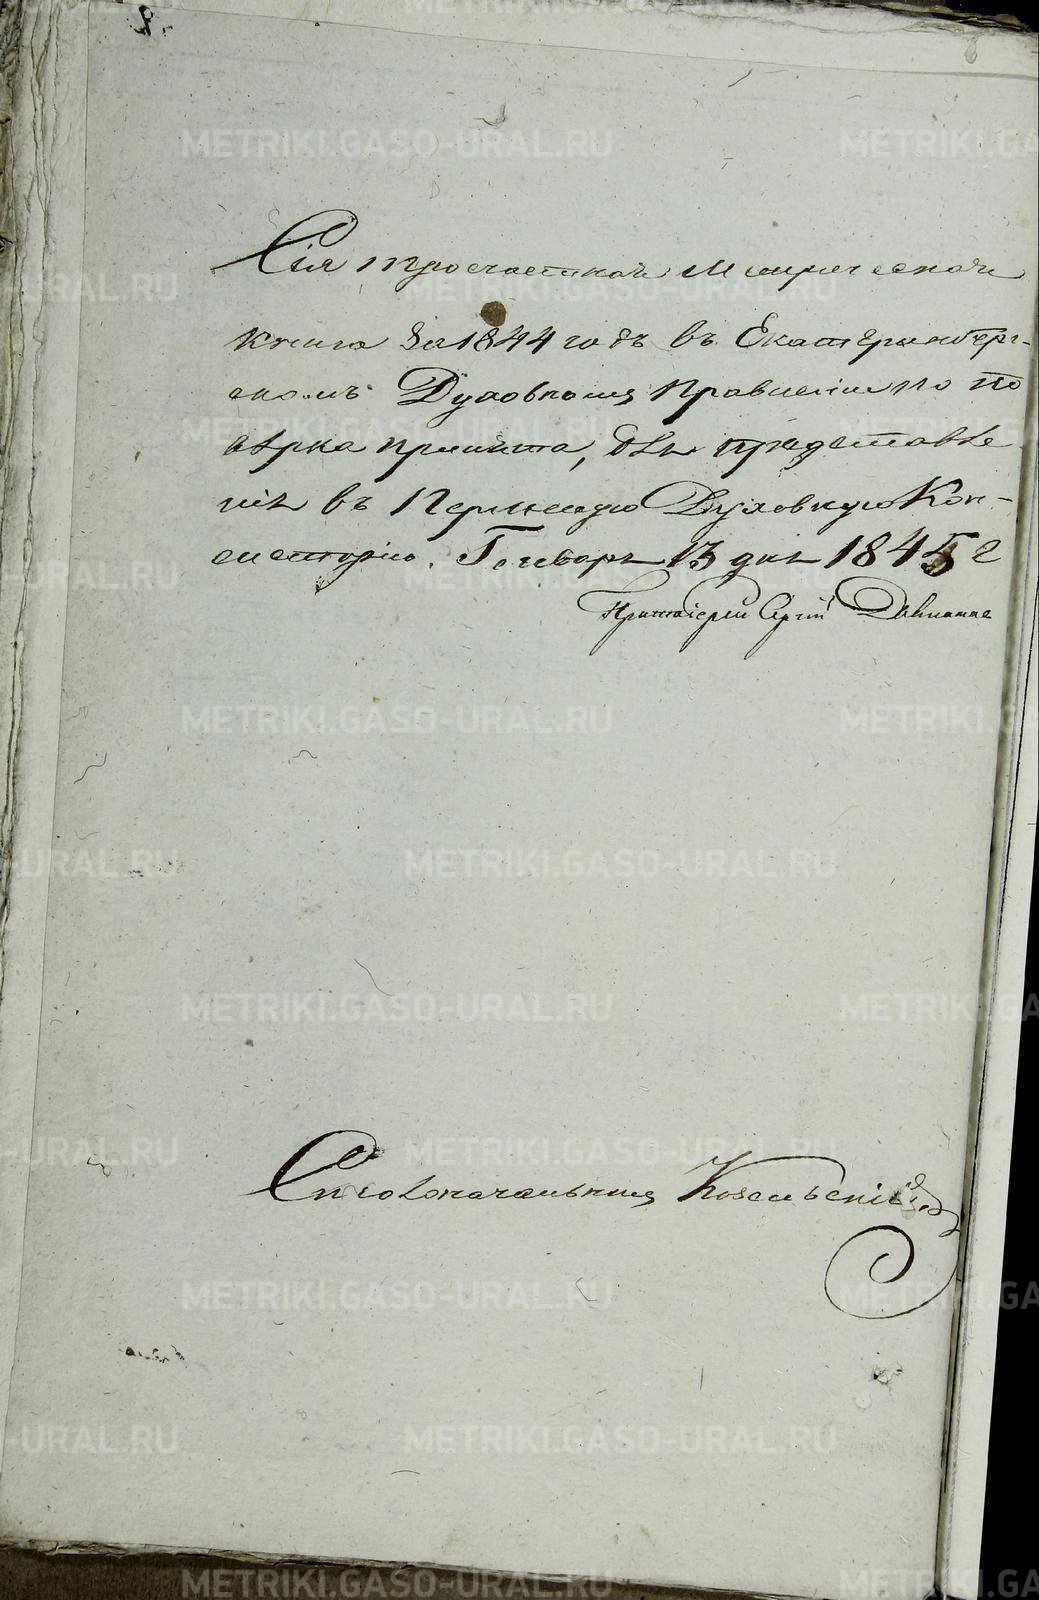 Сія тросчастная Метрическая
книга за 1844 годъ въ Екатеринбург-
скомъ Духовномъ Правленіи по по
вѣрке принята, для представле
нія въ Пермскую Духовную Кон-
систорію. Генваря 13 дня 1845 г
Протоіерей Сергій
Столоначальникъ
METRIKI.GASO-URAL.RU